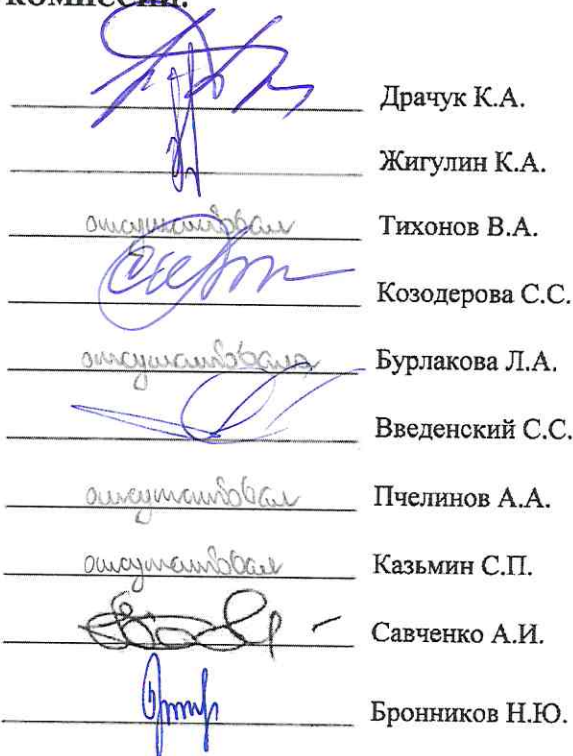 комиссии:
Драчук К.А.
Жигулин К.А.
отсутствовал Тихонов В.А.
Козодерова С.С.
отсутствовала Бурлакова Л.А.
Введенский С.С.
отсутствовал Пчелинов А.А.
отсутствовал Казьмин С.П.
Савченко А.И.
Бронников Н.Ю.